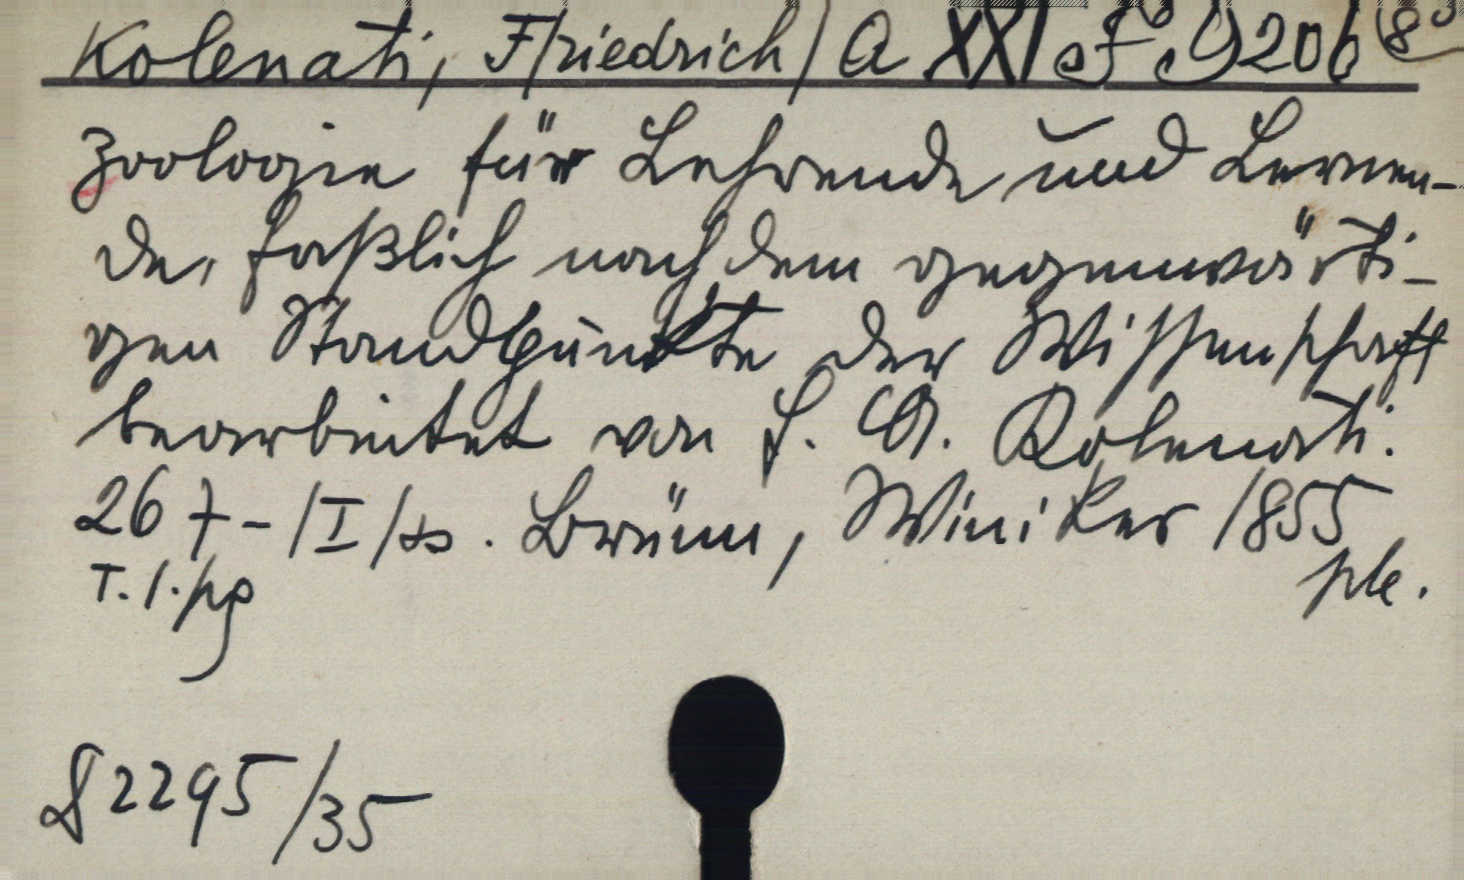 Kolenati, F/riedrich/ A XXI 9206 8°
Zoologie für Lehrende und Lernen-
de, faßlich nach dem gegenwärti-
gen Standpunkte der Wissenschaft
bearbeitet von F. A. Kolenati.
267-/I/ss. Brünn, Winiker 1855
T. 1. plk.
2295/35